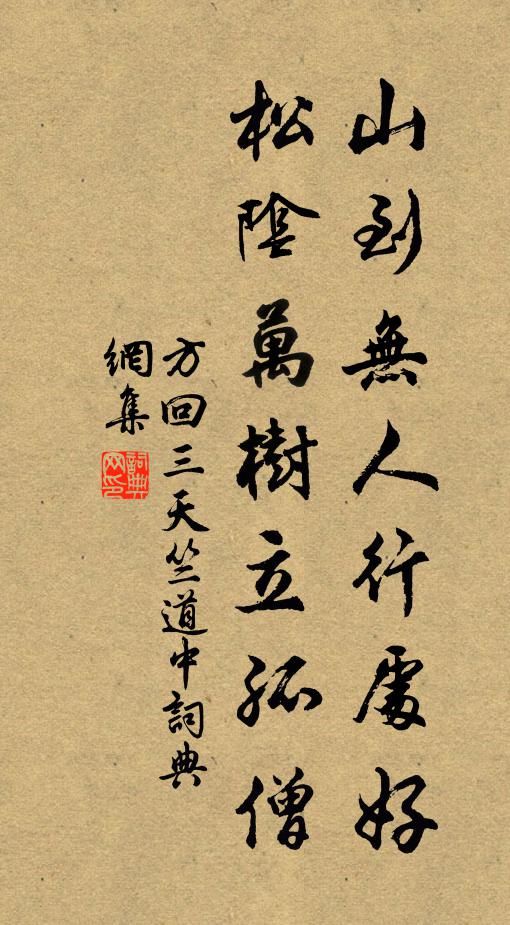 山到無人行處好
松陰萬樹立孤僧
方回三天竺道中詞典
網集
詞典网印